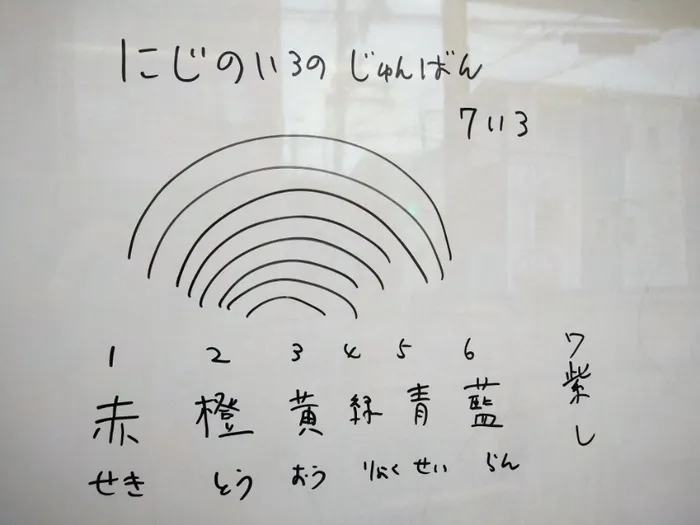 にじのいろのじゅんばん
7いろ
1 2 3 4 5 6 7
赤 橙 黄 緑 青 藍 紫
せき とう おう りょく せい らん し